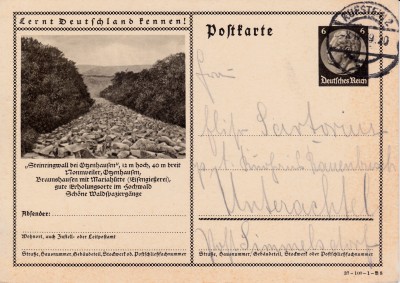 Lernt Deutschland kennen!
Postkarte
KUFSTEIN 2
6 6
Deutsches Reich
„Steinringwall bei Otzenhausen“, 12 m hoch, 40 m breit
Nonnweiler, Otzenhausen,
Braunshausen mit Mariahütte (Eisengießerei),
gute Erholungsorte im Hochwald
Schöne Waldspaziergänge
Absender:
Wohnort, auch Zustell- oder Leitpostamt
Straße, Hausnummer, Gebäudeteil, Stockwerk od. Postschließfachnummer
Sartorius
Unterachtel
Post Simmelsdorf
Straße, Hausnummer, Gebäudeteil, Stockwerk od. Postschließfachnummer